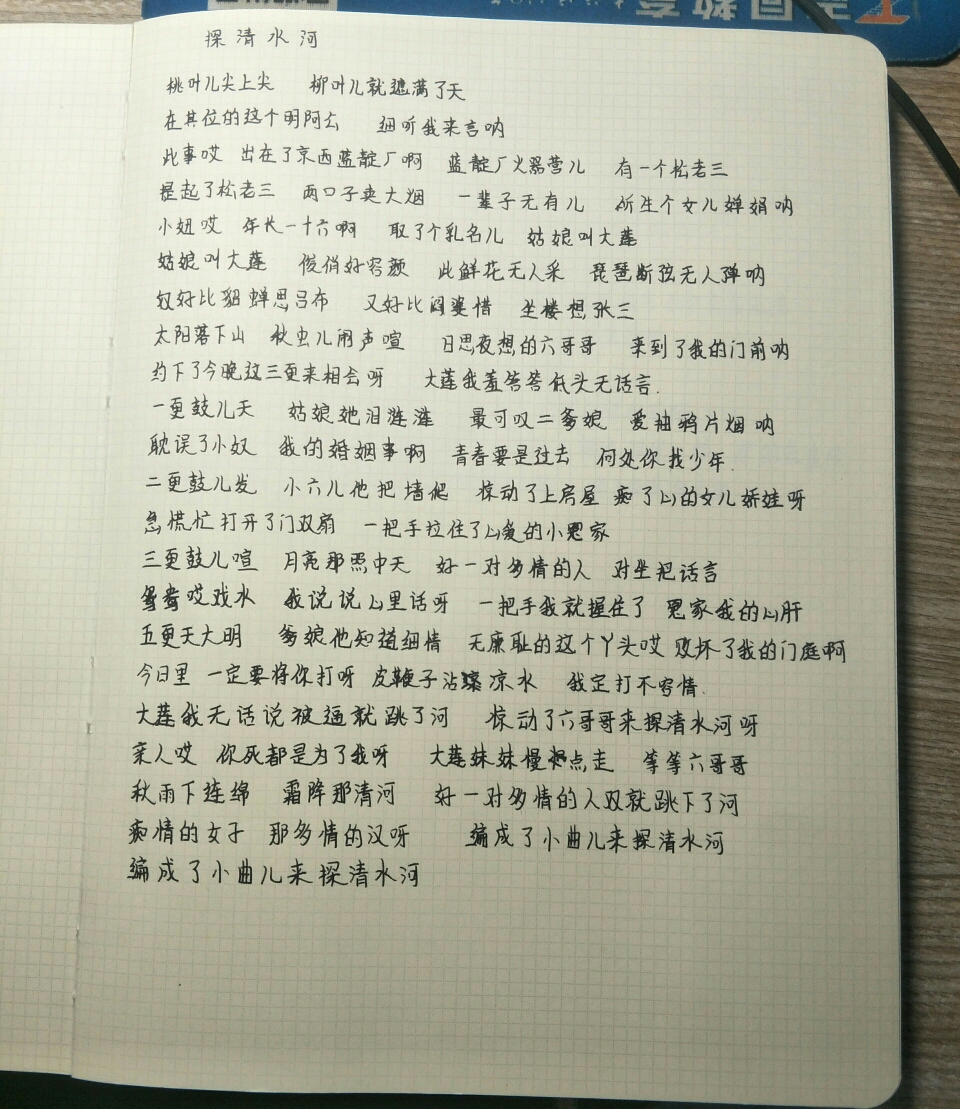 探清水河
桃叶儿尖上尖 柳叶儿就遮满了天
在其位的这个明阿公 细听我来言呐
此事哎 出在了京西蓝靛厂啊 蓝靛厂火器营儿 有一个松老三
提起了松老三 两口子卖大烟 一辈子无有儿 所生个女儿婵娟呐
小妞哎 年长一十六啊 取了个乳名儿 姑娘叫大莲
姑娘叫大莲 俊俏好容颜 此鲜花无人采 琵琶断弦无人弹呐
奴好比貂蝉思吕布 又好比阎婆惜 坐楼想张三
太阳落下山 秋虫儿闹声喧 日思夜想的六哥哥 来到了我的门前呐
约下了今晚这三更来相会呀 大莲我羞答答低头无话言.
一更鼓儿天 姑娘她泪涟涟 最可叹二爹娘 爱抽鸦片烟呐
耽误了小奴 我的婚姻事啊 青春要是过去 何处你找少年.
二更鼓儿发 小六儿他把墙爬 惊动了上房屋 痴了心的女儿娇娃呀
急慌忙打开了门双扇 一把手拉住了心爱的小冤家
三更鼓儿喧 月亮那照中天 好一对多情的人 对坐把话言
鸳鸯哎戏水 我说说心里话呀 一把手我就握住了 冤家我的心肝
五更天大明 爹娘他知道细情 无廉耻的这个丫头哎 败坏了我的门庭啊
今日里 一定要将你打呀 皮鞭子沾凉水 我定打不容情.
大莲我无话说被逼就跳了河 惊动了六哥哥来探清水河呀
亲人哎 你死都是为了我呀 大莲妹妹慢点走 等等六哥哥
秋雨下连绵 霜降那清河 好一对多情的人双就跳下了河
痴情的女子 那多情的汉呀 编成了小曲儿来探清水河
编成了小曲儿来探清水河